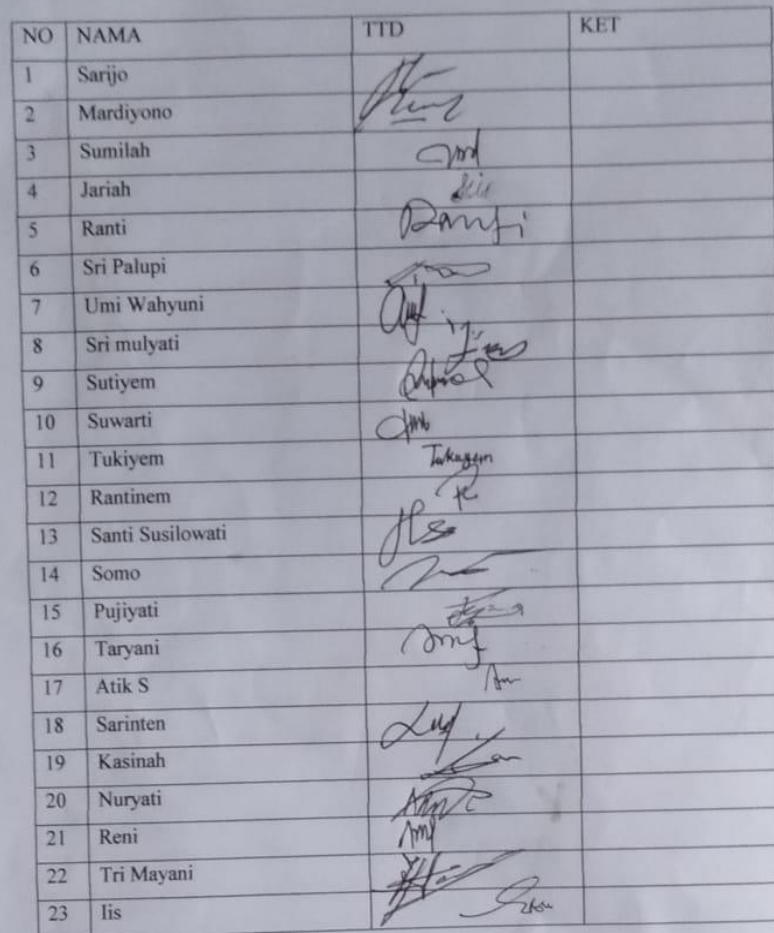 NO NAMA TTD KET
1 Sarijo
2 Mardiyono
3 Sumilah
4 Jariah
5 Ranti Ranti
6 Sri Palupi
7 Umi Wahyuni
8 Sri mulyati
9 Sutiyem
10 Suwarti
11 Tukiyem Tukiyem
12 Rantinem
13 Santi Susilowati
14 Somo
15 Pujiyati
16 Taryani
17 Atik S
18 Sarinten
19 Kasinah
20 Nuryati
21 Reni
22 Tri Mayani
23 Iis